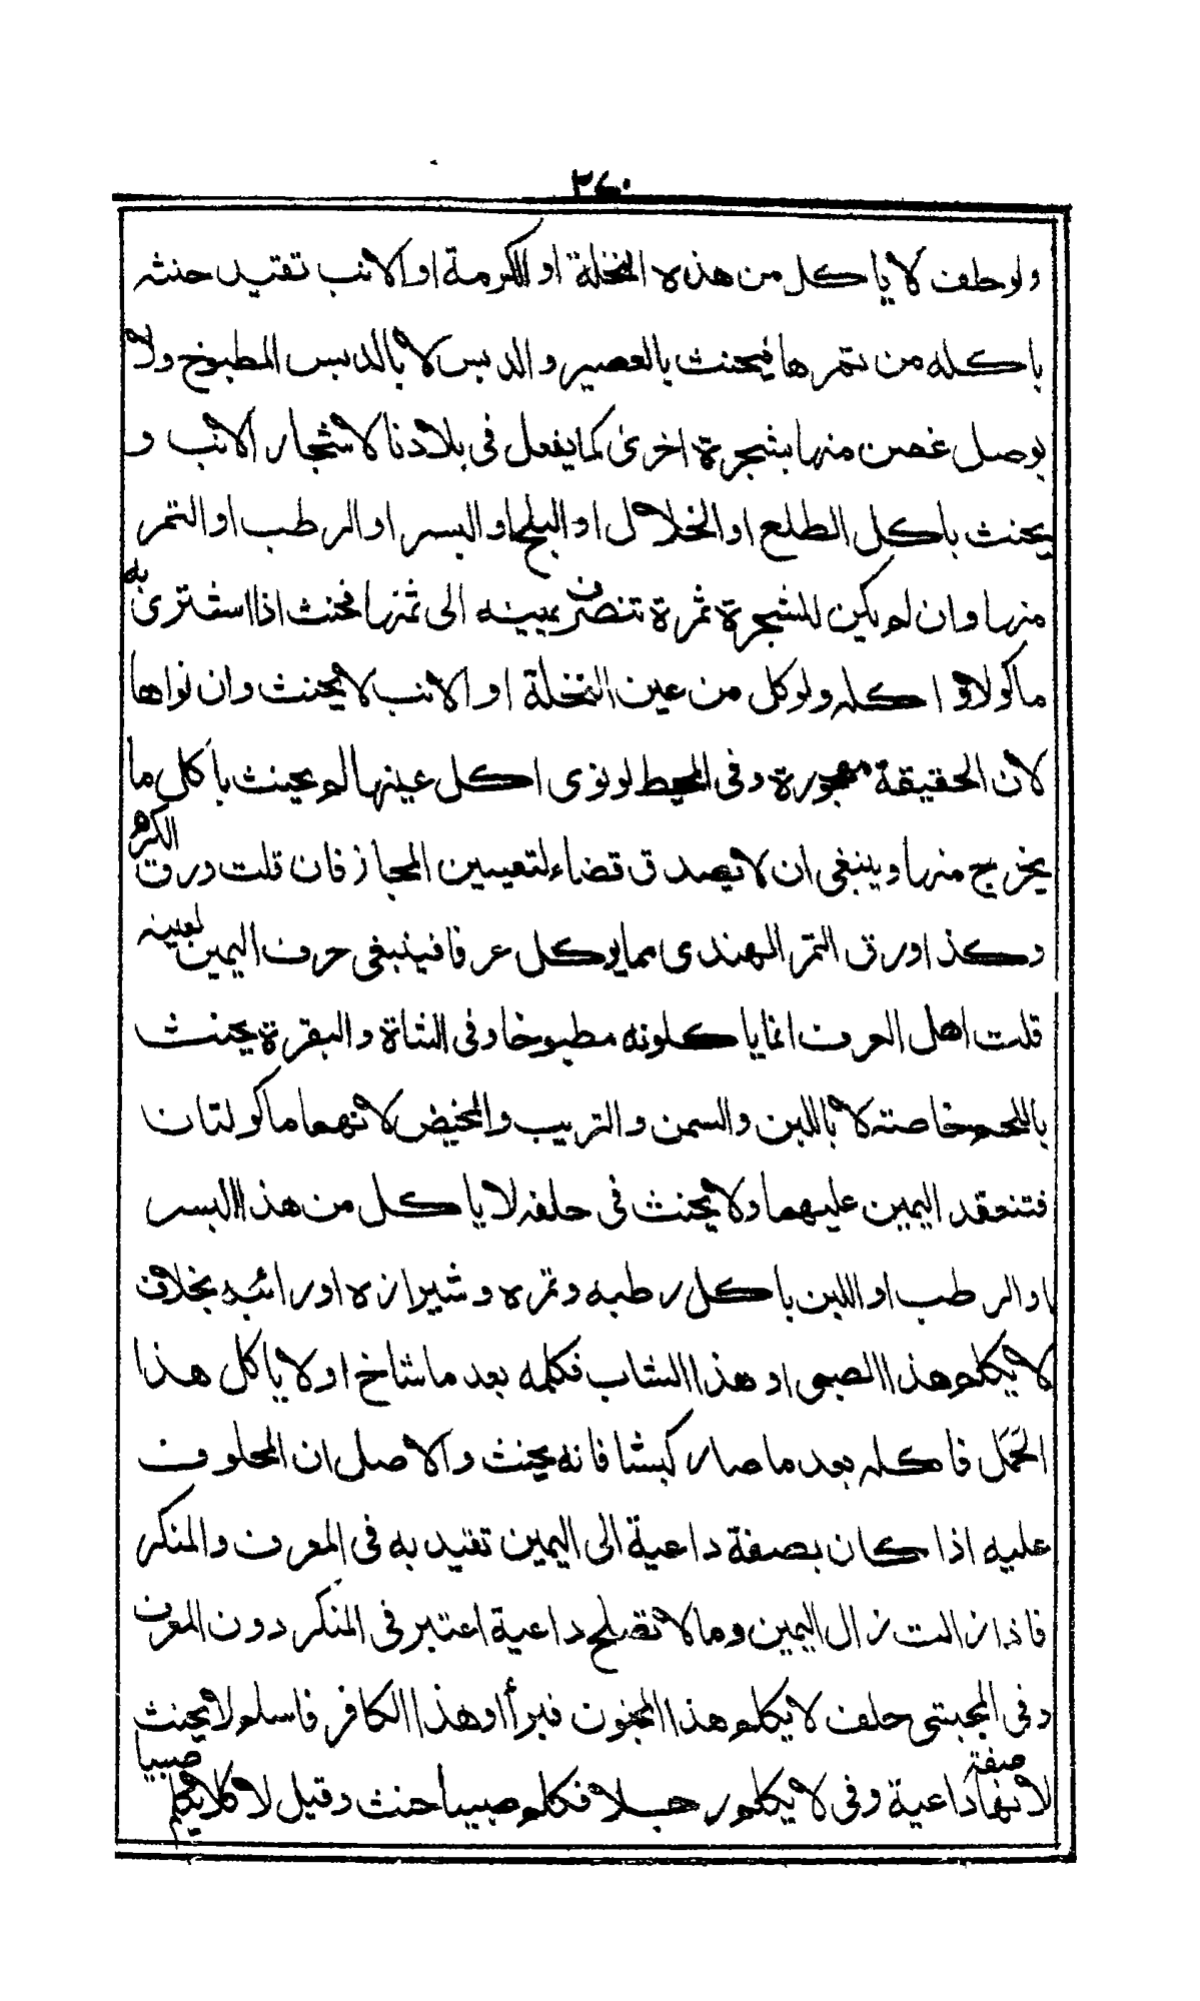 ٣٤٠
ولو حلف لا ياكل من هذه النخلة او الكرمة او الانب تقتيد حنثه
باكله من ثمرها فيحنث بالعصير و الدبس لا بالدبس المطبوخ ولا
يوصل غصن منها بشجرة اخرى كما يفعل فى بلادنا لاشجار الانب و
يحنث باكل الطلع او الخلال او البلح او البسر او الرطب او التمر
منها وان لم يكن للشجرة ثمرة تنصرف يمينه الى ثمنها فحنث اذا اشترى به
ماكولا و اكله ولو كل من عين النخلة او الانب لا يحنث وان نواها
لان الحقيقة مهجورة وفى المحيط لو نوى اكل عينها لم يحنث باكل ما
يخرج منها وينبغى ان لا يصدق قضاء لتعيين المجاز فان قلت ورق الكرم
وكذا ورق التمر الهندى مما يوكل عرفا فينبغى حرف اليمين لعينه
قلت اهل العرف انما ياكلونه مطبوخا وفى الشاة والبقرة يحنث
باللحم خاصته لا باللبن والسمن والتربيب والمخيض لانهما ماكولتان
فتنعقد اليمين عليهما ولا يحنث فى حلفه لا ياكل من هذا البسر
او الرطب او اللبن باكل رطبه وتمره وشيرازه او رائبه بخلاف
لا يكلم هذا الصبى او هذا الشاب فكلمه بعد ما شاخ او لا ياكل هذا
الحَمَل فاكله بعد ما صار كبشا فانه يحنث والاصل ان المحلوف
عليه اذا كان بصفة داعية الى اليمين تقيد به فى المعرف والمنكر
فاذا زالت زال اليمين وما لا تصلح داعية اعتبر فى المنكر دون المعرف
وفى المجتبى حلف لا يكلم هذا المجنون فبرأ او هذا الكافر فاسلم لا يحنث
لانها صفة داعية وفى لا يكلم رجلا فكلم صبيا حنث وقيل لا كلا يكلم صبيا